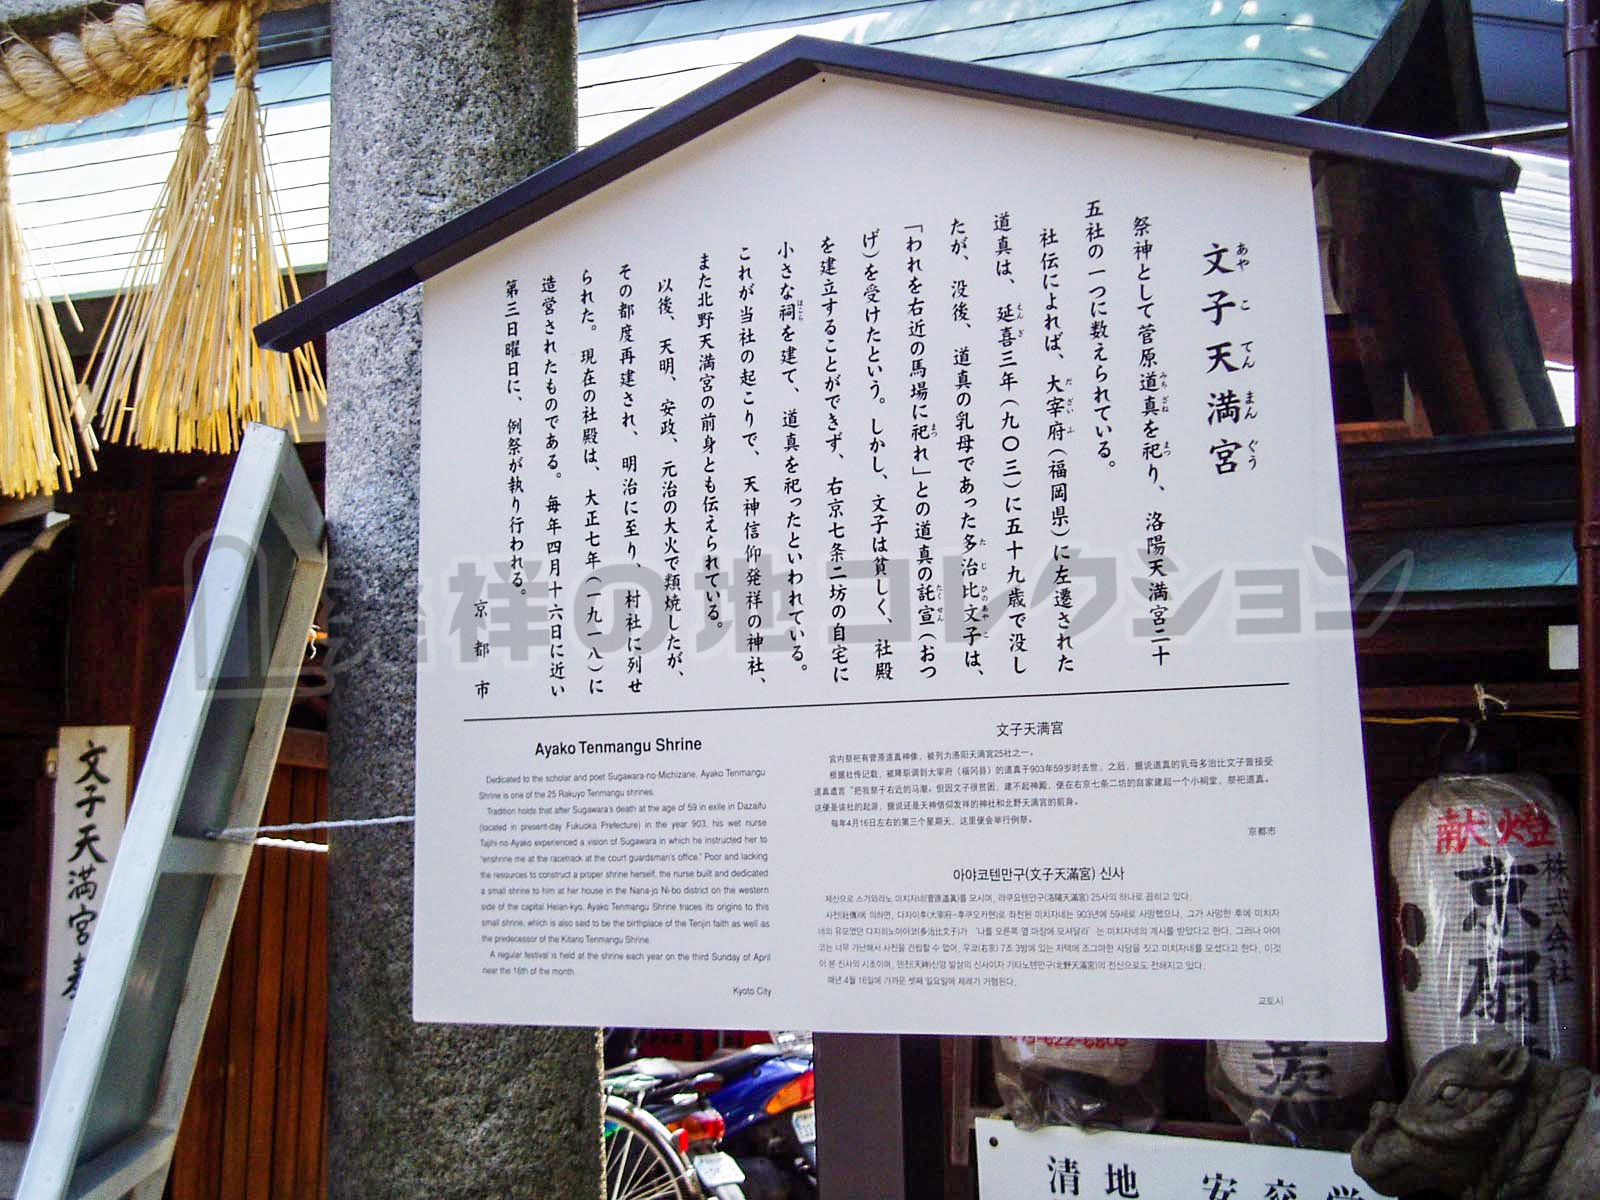 文子天満宮
あやこてんまんぐう
祭神として菅原道真を祀り、洛陽天満宮二十
五社の一つに数えられている。
社伝によれば、大宰府(福岡県)に左遷された
道真は、延喜三年(九〇三)に五十九歳で没し
たが、没後、道真の乳母であった多治比文子は、
「われを右近の馬場に祀れ」との道真の託宣(おつ
げ)を受けたという。しかし、文子は貧しく、社殿
を建立することができず、右京七条二坊の自宅に
小さな祠を建て、道真を祀ったといわれている。
これが当社の起こりで、天神信仰発祥の神社、
また北野天満宮の前身とも伝えられている。
以後、天明、安政、元治の大火で類焼したが、
その都度再建され、明治に至り、村社に列せ
られた。現在の社殿は、大正七年(一九一八)に
造営されたものである。毎年四月十六日に近い
第三日曜日に、例祭が執り行われる。
京都市
Ayako Tenmangu Shrine
Dedicated to the scholar and poet Sugawara-no-Michizane, Ayako Tenmangu
Shrine is one of the 25 Rakuyo Tenmangu shrines.
Tradition holds that after Sugawara's death at the age of 59 in exile in Dazaifu
(located in present-day Fukuoka Prefecture) in the year 903, his wet nurse
Tajihi-no-Ayako experienced a vision of Sugawara in which he instructed her to
"enshrine me at the racetrack at the court guardsman's office." Poor and lacking
the resources to construct a proper shrine herself, the nurse built and dedicated
a small shrine to him at her house in the Nana-jo Ni-bo district on the western
side of the capital Heian-kyo. Ayako Tenmangu Shrine traces its origins to this
small shrine, which is also said to be the birthplace of the Tenjin faith as well as
the predecessor of the Kitano Tenmangu Shrine.
A regular festival is held at the shrine each year on the third Sunday of April
near the 16th of the month.
Kyoto City
文子天满宫
宫内祭祀有菅原道真神像，被列为洛阳天满宫25社之一。
根据社传记载，被降职调到大宰府（福冈县）的道真于903年59岁时去世，之后，据说道真的乳母多治比文子曾接受
道真遗言"把我祭于右近的马场。但因文子很贫困，建不起神殿，便在右京七条二坊的自家建起一个小祠堂，祭祀道真。
这便是该社的起源，据说还是天神信仰发祥的神社和北野天满宫的前身。
每年4月16日左右的第三个星期天，这里便会举行例祭。
京都市
아야코텐만구(文子天満宮) 신사
제신으로 스가와라노 미치자네(菅原道真)를 모시며, 라쿠요텐만구(洛陽天満宮) 25사의 하나로 꼽히고 있다.
사전(社傳)에 의하면, 다자이후(大宰府-후쿠오카현)로 좌천된 미치자네는 903년에 59세로 사망했으나, 그가 사망한 후에 미치자
네의 유모였던 다지히노아야코(多治比文子)가 '나를 오른쪽 옆 마장에 모셔달라' 는 미치자네의 계시를 받았다고 한다. 그러나 아야
코는 너무 가난해서 사전을 건립할 수 없어, 우쿄(右京) 7조 3방에 있는 자택에 조그마한 사당을 짓고 미치자네를 모셨다고 한다. 이것
이 본 신사의 시초이며, 텐진(天神)신앙 발상의 신사이자 기타노텐만구(北野天満宮)의 전신으로도 전해지고 있다.
매년 4월 16일에 가까운 셋째 일요일에 제례가 거행된다.
교토시
文子天満宮奉
献燈
京扇
株式会社
清地
発祥の地コレクション